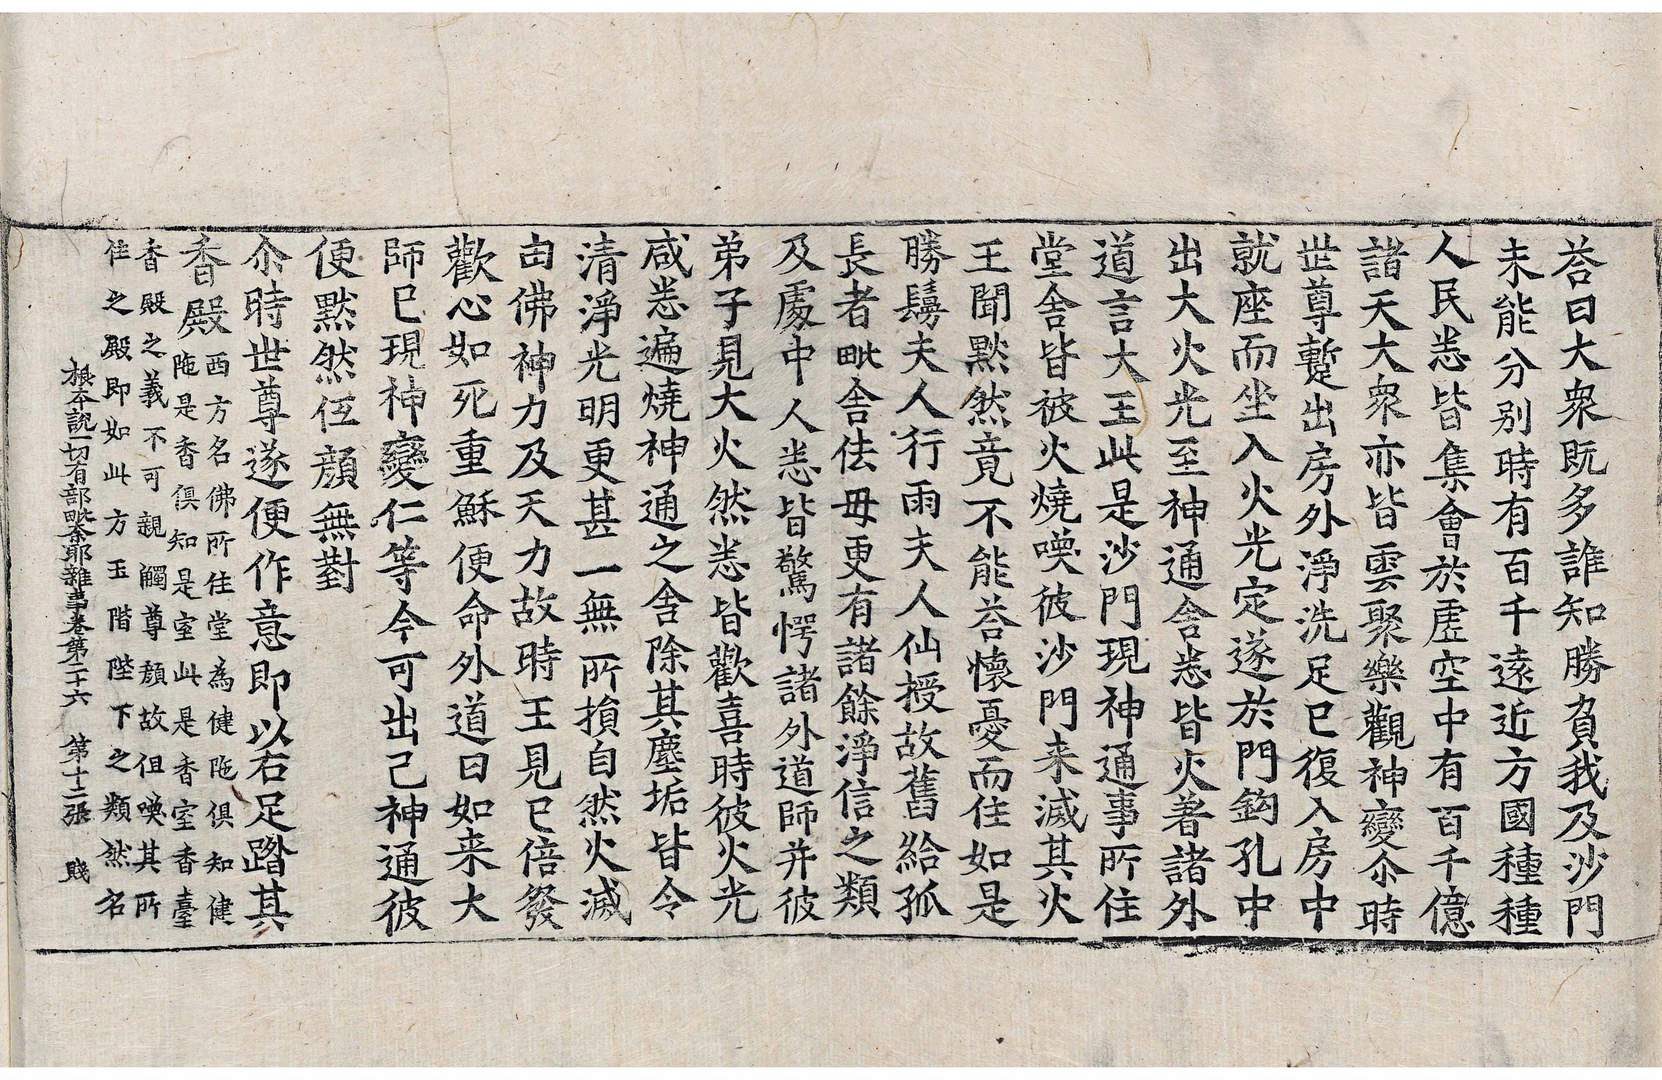 荅曰大衆既多誰知勝負我及沙門
未能分別時有百千遠近方國種種
人民悉皆集會於虛空中有百千億
諸天大衆亦皆雲聚樂觀神變尒時
世尊蹔出房外淨洗足已復入房中
就座而坐入火光定遂於門鈎孔中
出大火光至神通舍悉皆火著諸外
道言大王此是沙門現神通事所住
堂舍皆被火燒喚彼沙門来滅其火
王聞默然竟不能荅懷憂而住如是
勝鬘夫人行雨夫人仙授故舊給孤
長者毗舍佉母更有諸餘淨信之類
及處中人悉皆驚愕諸外道師并彼
弟子見大火然悉皆歡喜時彼火光
咸悉遍燒神通之舍除其塵垢皆令
清淨光明更甚一無所損自然火滅
由佛神力及天力故時王見已倍發
歡心如死重穌便命外道曰如来大
師已現神變仁等今可出己神通彼
便默然伍顔無對
尒時世尊遂便作意即以右足踏其
香殿西方名佛所住堂為健陁俱知健
陁是香俱知是室此是香室香臺
香殿之義不可親觸尊顔故但喚其所
住之殿即如此方玉階陛下之類然名
根本說一切有部毗奈耶雜事卷第二十六　第十二張　賤